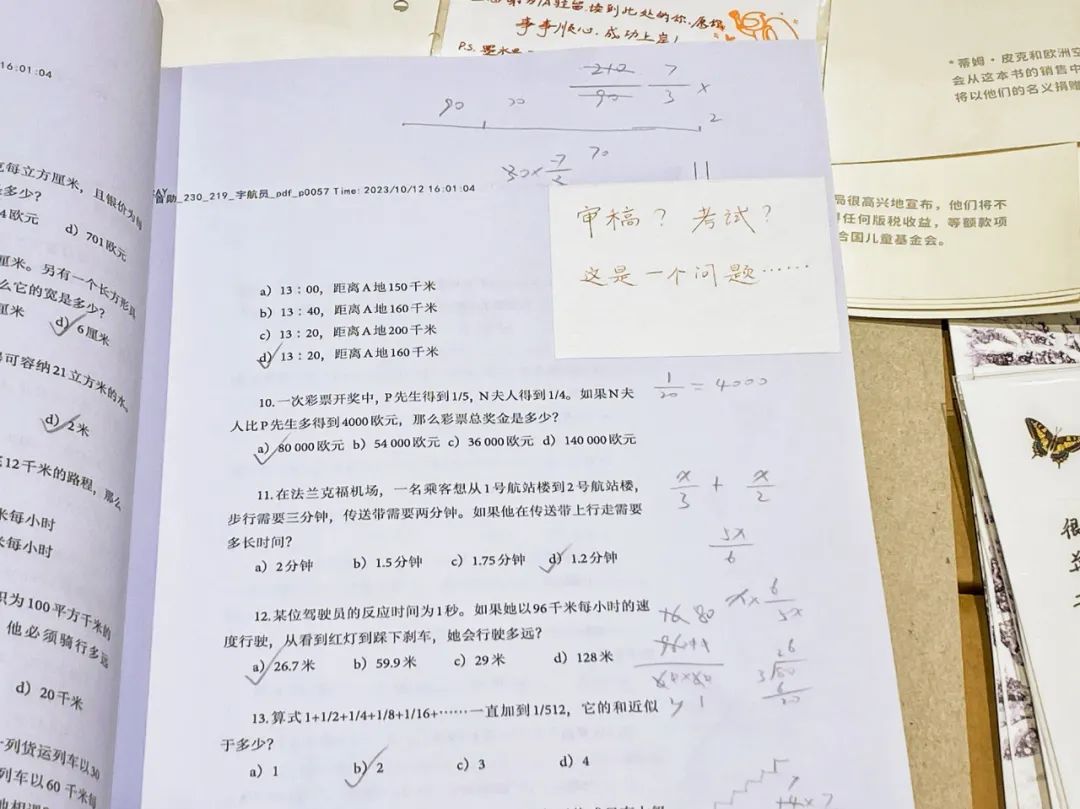 事事顺心,成功上岸!
P.S.
* 蒂姆・皮克和欧洲空
会从这本书的销售中
将以他们的名义捐赠
局很高兴地宣布，他们将不
任何版税收益，等额款项
合国儿童基金会。
16:01:04
克每立方厘米，且银价为每
多少？
4欧元 d）701欧元
厘米。另有一个长方形
么它的宽是多少？
厘米 d）6厘米
可容纳21立方米的水。
d）2米
12千米的路程，那么
米每小时
米每小时
积为100平方千米的
他必须骑行多远
d）20千米
一列货运列车以30
列车以60千米每
90
70
7
3 x
2
_230_219_宇航员_pdf_p0057 Time: 2023/10/12 16:01:04
审稿？考试？
这是一个问题……
a）13：00，距离A地150千米
b）13：40，距离A地160千米
c）13：20，距离A地200千米
d）13：20，距离A地160千米
10.一次彩票开奖中，P先生得到1/5，N夫人得到1/4。如果N夫
人比P先生多得到4000欧元，那么彩票总奖金是多少？
a）80 000欧元 b）54 000欧元 c）36 000欧元 d）140 000欧元
1/20 = 4000
11.在法兰克福机场，一名乘客想从1号航站楼到2号航站楼，
步行需要三分钟，传送带需要两分钟。如果他在传送带上行走需要
多长时间？
a）2分钟 b）1.5分钟 c）1.75分钟 d）1.2分钟
x/3 + x/2
5x/6
12.某位驾驶员的反应时间为1秒。如果她以96千米每小时的速
度行驶，从看到红灯到踩下刹车，她会行驶多远？
a）26.7米 b）59.9米 c）29米 d）128米
x×6/5x
13.算式1+1/2+1/4+1/8+1/16+……一直加到1/512，它的和近似
于多少？
a）1 b）2 c）3 d）4